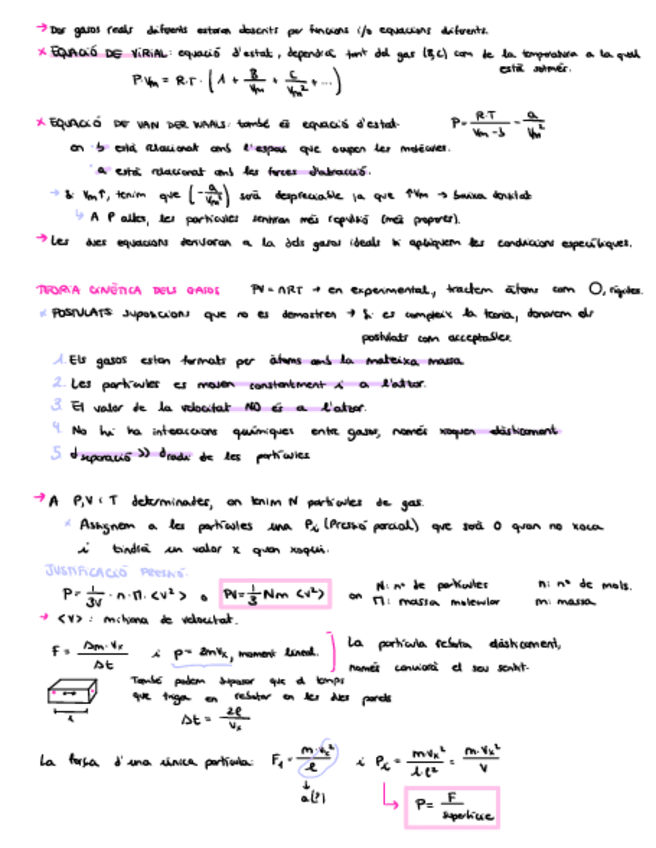 → Dos gasos reals diferents estaran descrits per funcions i/o equacions diferents.
× EQUACIÓ DE VIRIAL: equació d'estat, dependrà tant del gas (B,C) com de la temperatura a la qual
està sotmès.
P·Vm = R·T · (1 + B/Vm + C/Vm² + ...)
× EQUACIÓ DE VAN DER WAALS: també és equació d'estat. P = R·T/(Vm - b) - a/Vm²
on b està relacionat amb l'espai que ocupen les molècules.
a està relacionat amb les forces d'atracció.
→ Si Vm↑, tenim que (-a/Vm²) serà despreciable ja que ↑Vm → baixa densitat
↳ A P altes, les partícules sentiran més repulsió (més properes).
→ Les dues equacions derivaran a la dels gasos ideals si apliquem les condicions específiques.
TEORIA CINÈTICA DELS GASOS PV = nRT → en experimental, tractem àtoms com O, rígides.
× POSTULATS suposicions que no es demostren → Si es compleix la teoria, donarem els
postulats com acceptables.
1. Els gasos estan formats per àtoms amb la mateixa massa
2. Les partícules es mouen constantment i a l'atzar.
3. El valor de la velocitat NO és a l'atzar.
4. No hi ha interaccions químiques entre gasos, només xoquen elàsticament
5. d separació >> d radi de les partícules
→ A P,V i T determinades, on tenim N partícules de gas.
× Assignem a les partícules una Pi (Pressió parcial) que serà 0 quan no xoca
i tindrà un valor x quan xoqui.
JUSTIFICACIÓ PRESSIÓ.
P = 1/3V · n · M · <v²> o PV = 1/3 N m <v²> on N: nº de partícules n: nº de mols.
M: massa molecular m: massa
→ <v>: mitjana de velocitat.
F = Δm·vx/Δt i p = 2mvx, moment lineal. La partícula rebota elàsticament,
només canviarà el seu sentit.
També podem suposar que el temps
que triga en rebotar en les dues parets
l
Δt = 2l/vx
La força d'una única partícula: F1 = m·vx²/l i Pi = m·vx²/l·l² = m·vx²/V
↓
a(?)
↳ P = F/superfície